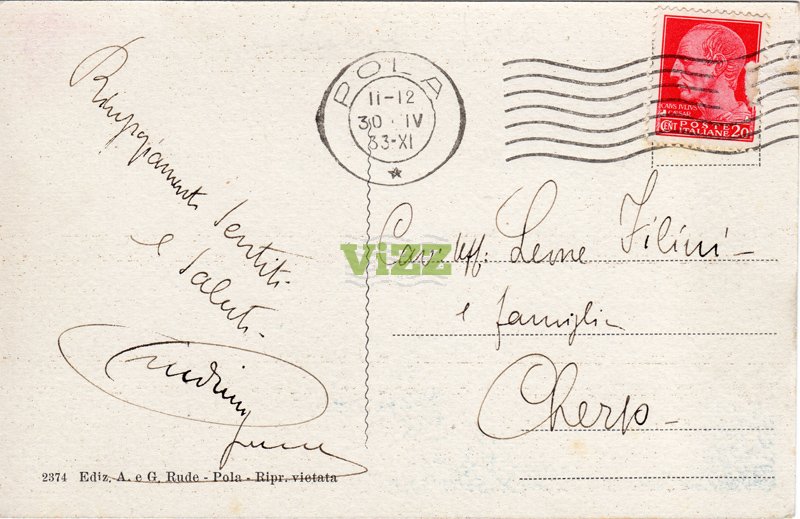 Ringraziamenti sentiti
e saluti.
2374 Ediz. A. e G. Rude - Pola - Ripr. vietata
POLA
11-12
30 · IV
33-XI
CAIVS IVLIVS
CAESAR
CENT POSTE ITALIANE 20
ViZZ
Cav. Uff: Leone Filini -
e famiglia
Cherso -